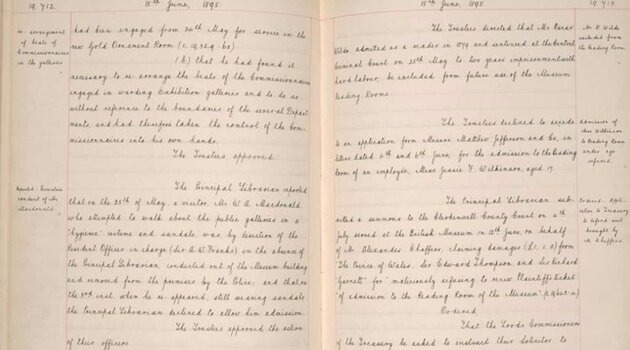 19,412
15th June, 1895
re-arrangement
of beats of
Commissionaires
in the galleries
had been engaged from 24th May for service in the
new Gold Ornament Room
(b) that he had found it
necessary to re-arrange the beats of the Commissionaires
engaged in warding Exhibition galleries and to do so
without reference to the boundaries of the several Depart-
ments, and had therefore taken the control of the Com-
missionaires into his own hands.
The Trustees approved.
conduct of Mr.
Macdonald
The Principal Librarian reported
that on the 25th of May, a visitor, Mr W. A. Macdonald
who attempted to walk about the public galleries in a
"hygienic" costume and sandals, was by direction of the
Resident Officer in charge (Sir A. W. Franks) in the absence of
the Principal Librarian conducted out of the Museum building
and removed from the premises by the Police; and that on
the 3rd inst. when he re-appeared, still wearing sandals
the Principal Librarian declined to allow him admission.
The Trustees approved the action
of their officers
15th June, 1895
19,413
Mr. O. Wilde
excluded from
the Reading Room
The Trustees directed that Mr Oscar
Wilde admitted as a reader in 1879 and sentenced at the Central
Criminal Court on 25th May to two years imprisonment with
hard labour, be excluded from future use of the Museum
Reading Room
Admission of
Miss Wilkinson
to Reading Room
under age
refused
The Trustees declined to accede
to an application from Messrs. Matthew Jefferson and Co, in
letters dated 4th and 6th June, for the admission to the Reading
Room of an employée, Miss Jessie F. Wilkinson, aged 19.
to Treasury
to defend suit
brought by
Mr Chaffers
The Principal Librarian sub-
mitted a summons to the Clerkenwell County Court on 4th
July served at the British Museum on 12th June, on behalf
of Mr. Alexander Chaffers, claiming damages (£1. 1. 0) from
The Prince of Wales, Sir Edward Thompson and Sir Richard
"Garnett" for "maliciously refusing to renew Plaintiff's ticket
"of admission to the Reading Room of the Museum"
Ordered,
That the Lords Commissioners
of the Treasury be asked to instruct their Solicitor to